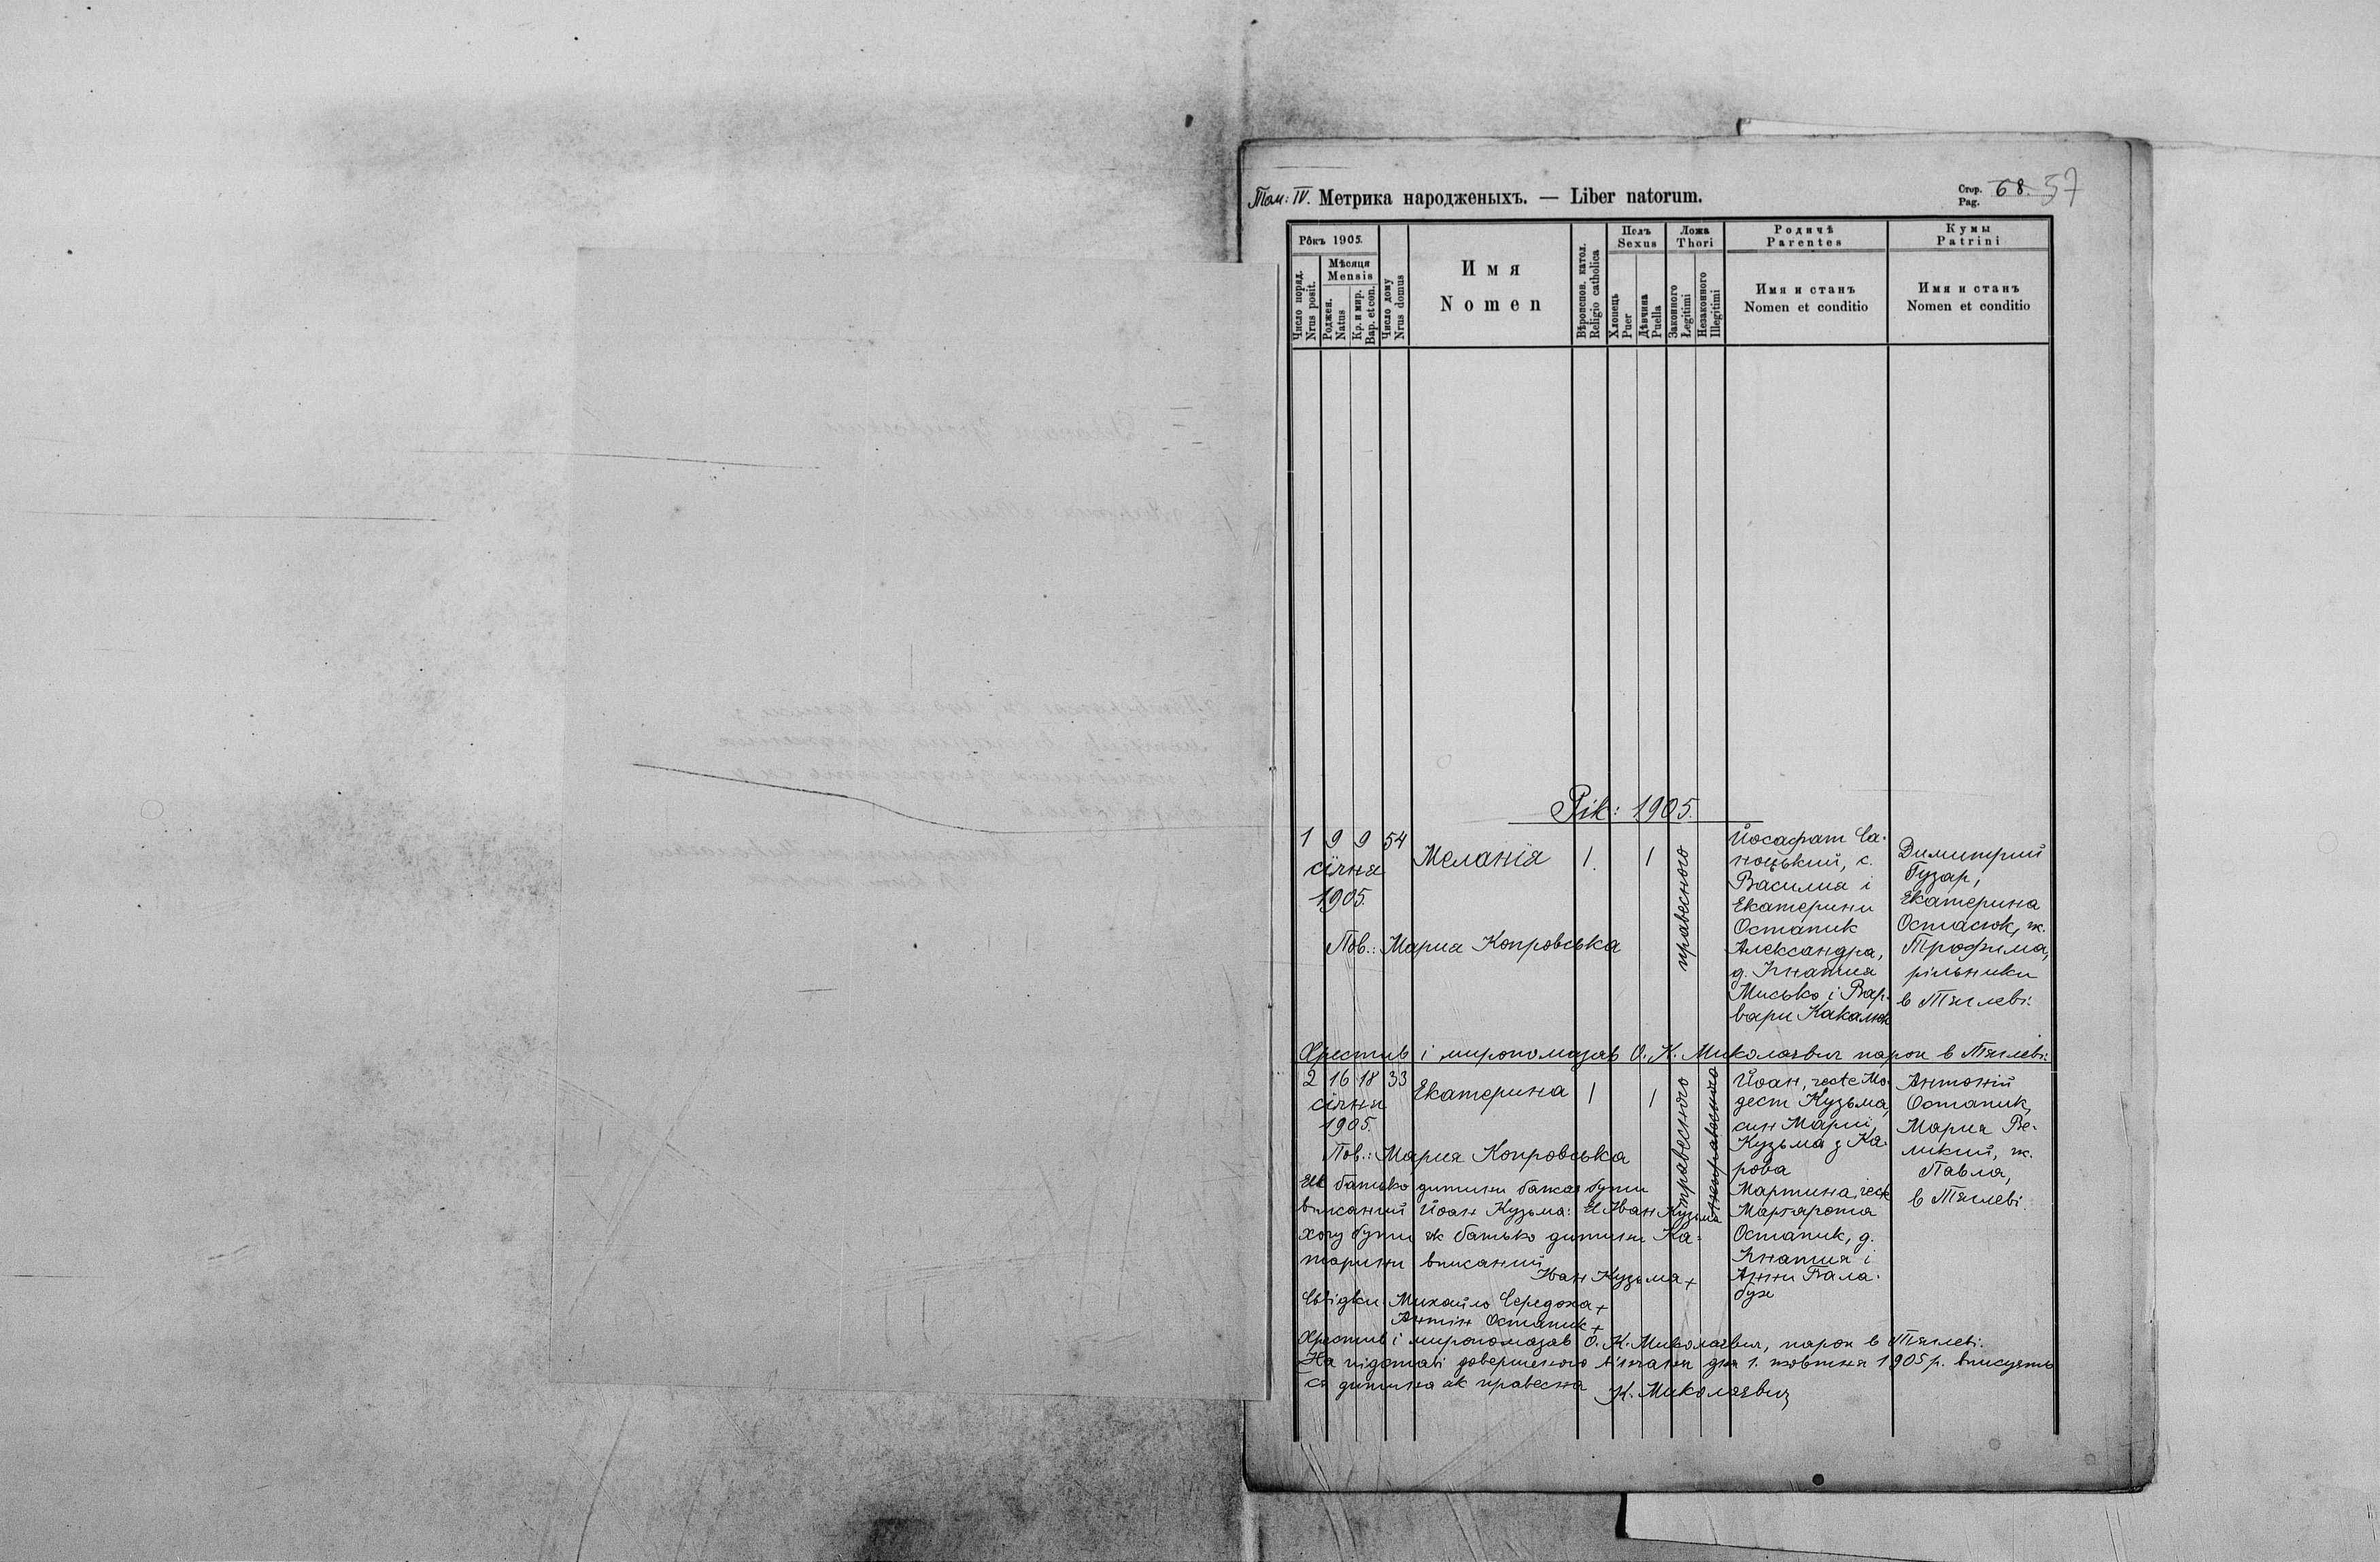 Том: IV. Метрика народженыхъ. — Liber natorum.
Стор. 68. 57
Pag.
Рôкъ 1905.
Мѣсяця
Mensis
Число поряд.
Nrus posit.
Роджен.
Natus
Кр. и мир.
Bap. et con.
Число дому
Nrus domus
Имя
Nomen
Вѣроиспов. катол.
Religio catholica
Полъ
Sexus
Хлопець
Puer
Дѣвчина
Puella
Ложа
Thori
Законного
Legitimi
Незаконного
Illegitimi
Родичѣ
Parentes
Имя и станъ
Nomen et conditio
Кумы
Patrini
Имя и станъ
Nomen et conditio
Рік: 1905.
1 9 9 54
січня
1905.
Меланія
1.
1
правесного
Йосафат Са-
ноцький, с.
Василия і
Екатерини
Остапик
Александра,
д. Игнатия
Мисько і Вар-
вари Какалюк
Димитрий
Гузар,
Екатерина
Остасюк, ж.
Трофима,
рільники
в Тяглеві.
Пов.: Мария Копровська
Хрестив і миропомазав О. К. Миколаєвич парох в Тяглеві:
2 16 18 33
січня
1905.
Екатерина
1
1
правесного
неправесного
Йоан, recte Мо-
дест Кузьма,
син Марії,
Кузьма з Ка-
рова
Мартина, recte
Маргарота
Остапик, д.
Игнатия і
Анни Бала-
бух
Антоній
Остапик,
Мария Ве-
ликий, ж.
Павла,
в Тяглеві.
Пов.: Мария Копровська
Як батько дитини бажає бути
вписаний Йоан Кузьма: Я Іван Кузьма
хочу бути як батько дитини Ка-
тарини вписаний
Іван Кузьма +
Свідки: Михайло Середоха +
Антін Остапик +
Хрестив і миропомазав О. К. Миколаєвич, парох в Тяглеві.
На підставі довершеного вінчаня дня 1. жовтня 1905 р. вписуєть
ся дитина як правесна К. Миколаєвич